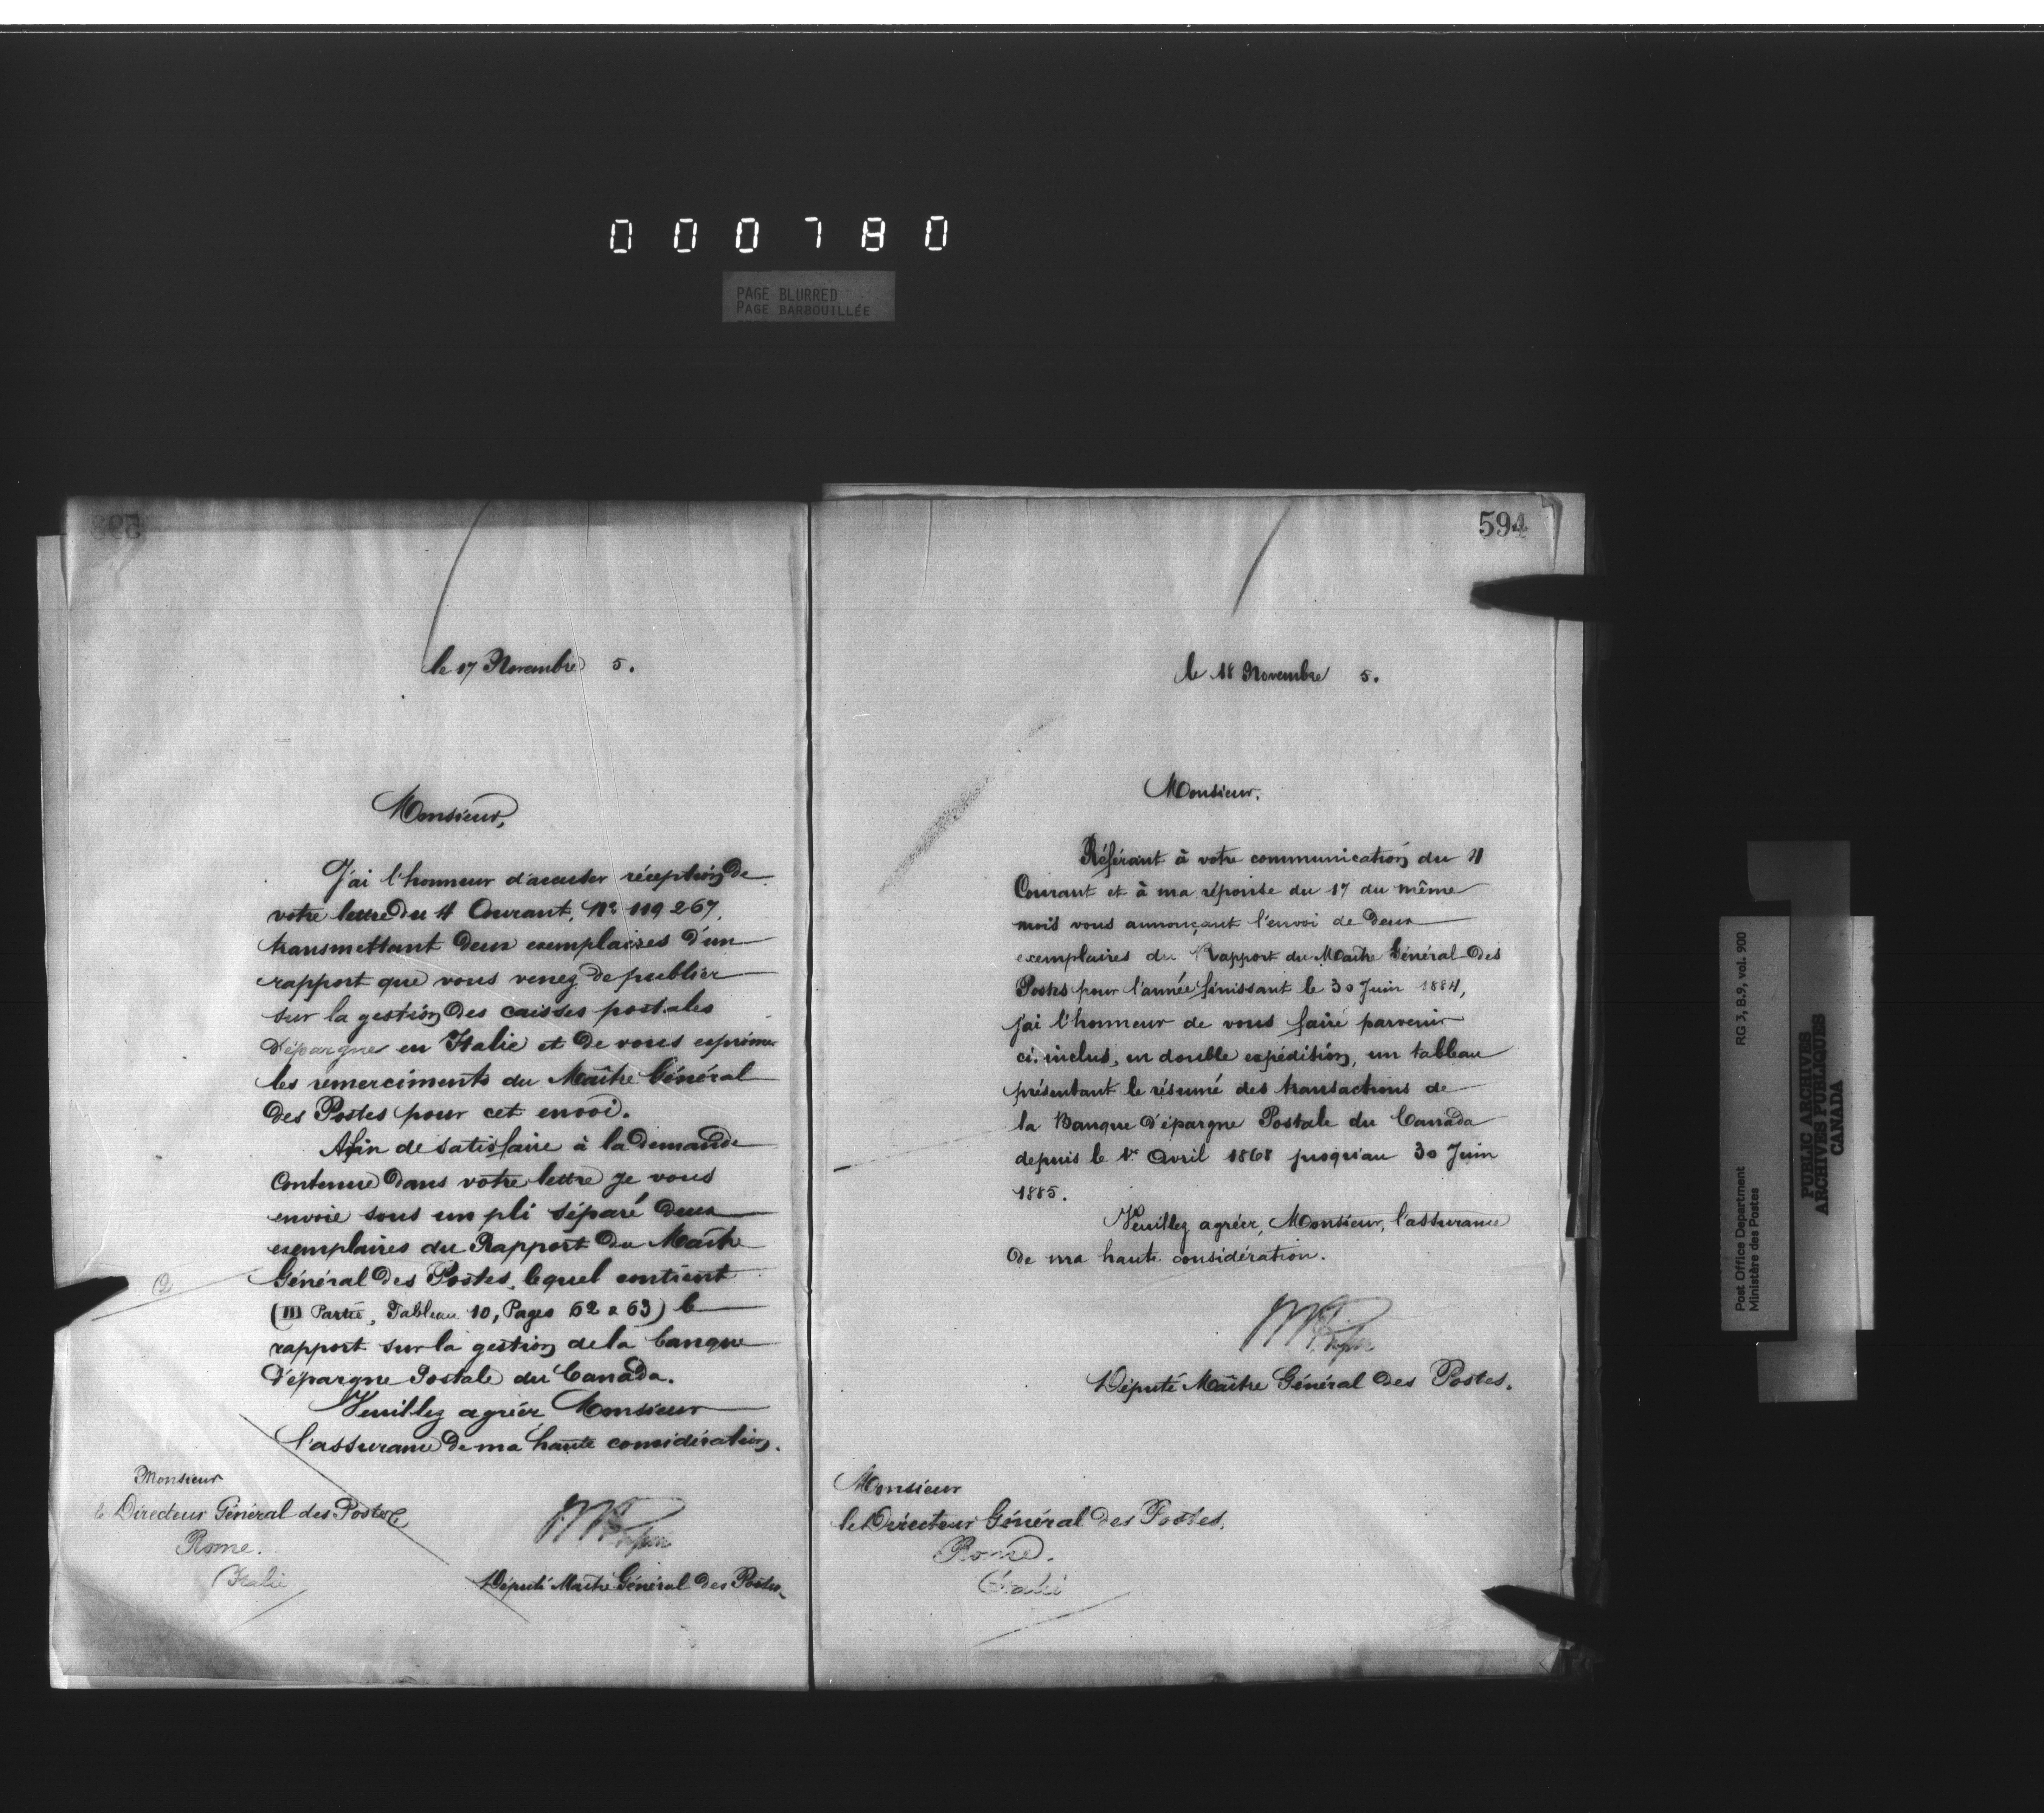 000780
PAGE BLURRED
PAGE BARBOUILLÉE
593
le 17 Novembre 5.
Monsieur,
J'ai l'honneur d'accuser réception de
votre lettre du 4 Courant, No 119267,
transmettant deux exemplaires d'un
rapport que vous venez de publier
sur la gestion des caisses postales
d'épargnes en Italie et de vous exprimer
les remerciments du Maître Général
des Postes pour cet envoi.
Afin de satisfaire à la demande
contenue dans votre lettre je vous
envoie sous un pli séparé deux
exemplaires du Rapport du Maître
Général des Postes, lequel contient
(III Partie, Tableau 10, Pages 62 & 63) le
rapport sur la gestion de la banque
d'épargne Postale du Canada.
Veuillez agréer Monsieur
l'assurance de ma haute considération.
Monsieur
le Directeur Général des Postes
Rome.
Italie
Député Maître Général des Postes
594
le 18 Novembre 5.
Monsieur.
Référant à votre communication du 4
Courant et à ma réponse du 17 du même
mois vous annonçant l'envoi de deux
exemplaires du Rapport du Maître Général des
Postes pour l'année finissant le 30 Juin 1884,
j'ai l'honneur de vous faire parvenir
ci-inclus, en double expédition, un tableau
présentant le résumé des transactions de
la Banque d'épargne Postale du Canada
depuis le 1er Avril 1868 jusqu'au 30 Juin
1885.
Veuillez agréer, Monsieur, l'assurance
de ma haute considération.
Député Maître Général des Postes.
Monsieur
le Directeur Général des Postes.
Rome.
Italie
Post Office Department
Ministère des Postes
RG 3, B.9, vol. 900
PUBLIC ARCHIVES
ARCHIVES PUBLIQUES
CANADA